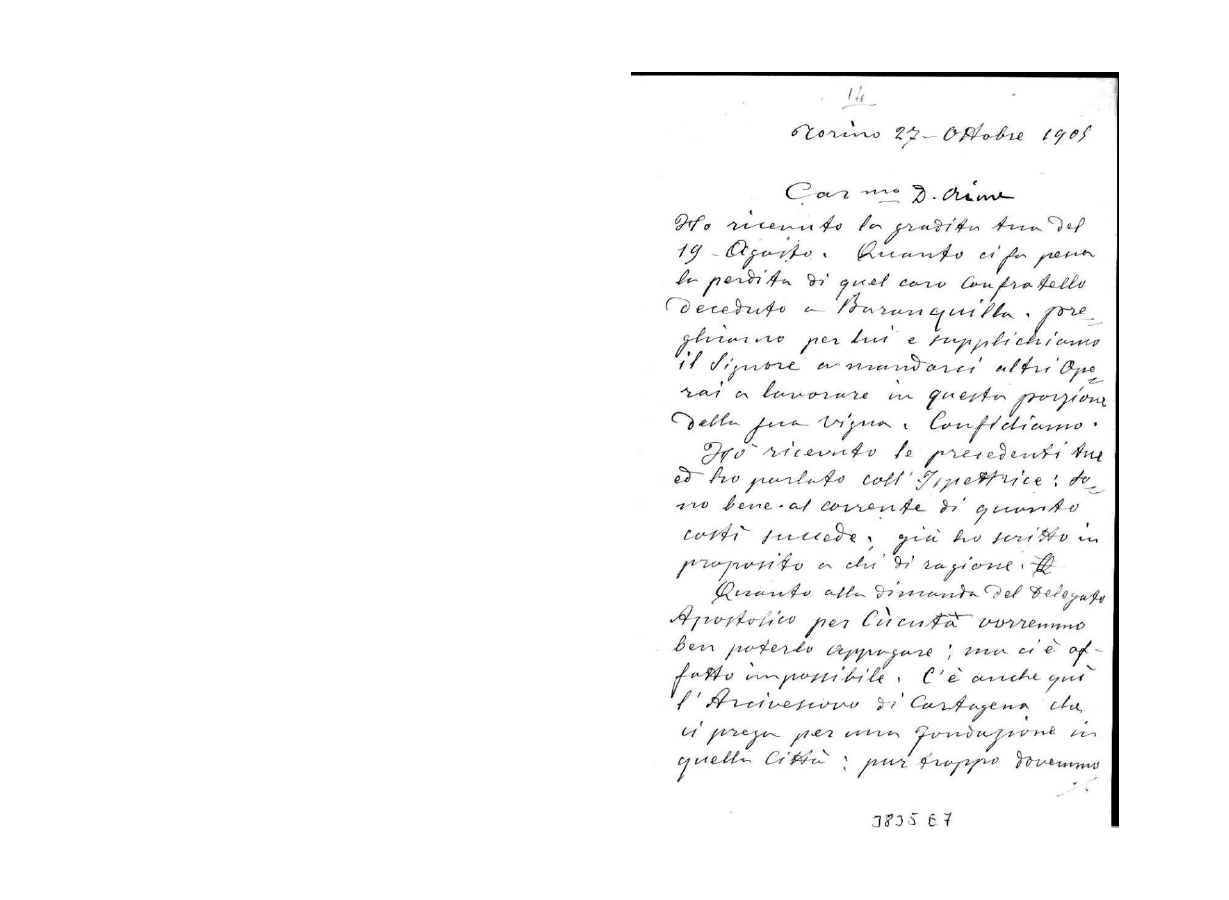 14
Torino 27 - Ottobre 1905
Car mo D. Aime
Ho ricevuto la gradita tua del
19 - Agosto. Quanto ci fa pena
la perdita di quel caro Confratello
deceduto a Baranquilla. pre=
ghiamo per lui e supplichiamo
il Signore a mandarci altri Ope=
rai a lavorare in questa porzione
della sua vigna. Confidiamo.
Ho ricevuto le precedenti tue
ed ho parlato coll' Ispettrice: So=
no bene al corrente di quanto
costì succede; già ho scritto in
proposito a chi di ragione.
Quanto alla dimanda del Delegato
Apostolico per Cùcutà vorremmo
ben poterlo appagare; ma ci è af-
fatto impossibile. C'è anche quì
l'Arcivescovo di Cartagena che
ci prega per una fondazione in
quella Città: pur troppo dovemmo
383567